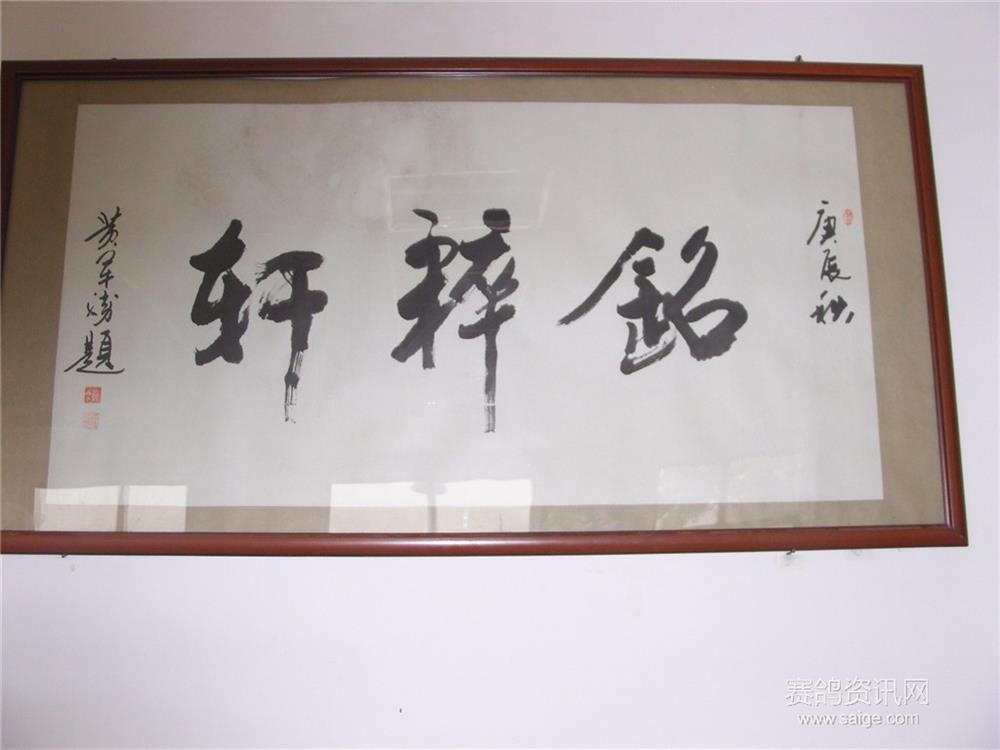 庚辰秋
銘粹轩
黄军涛题
赛鸽资讯网
www.saige.com